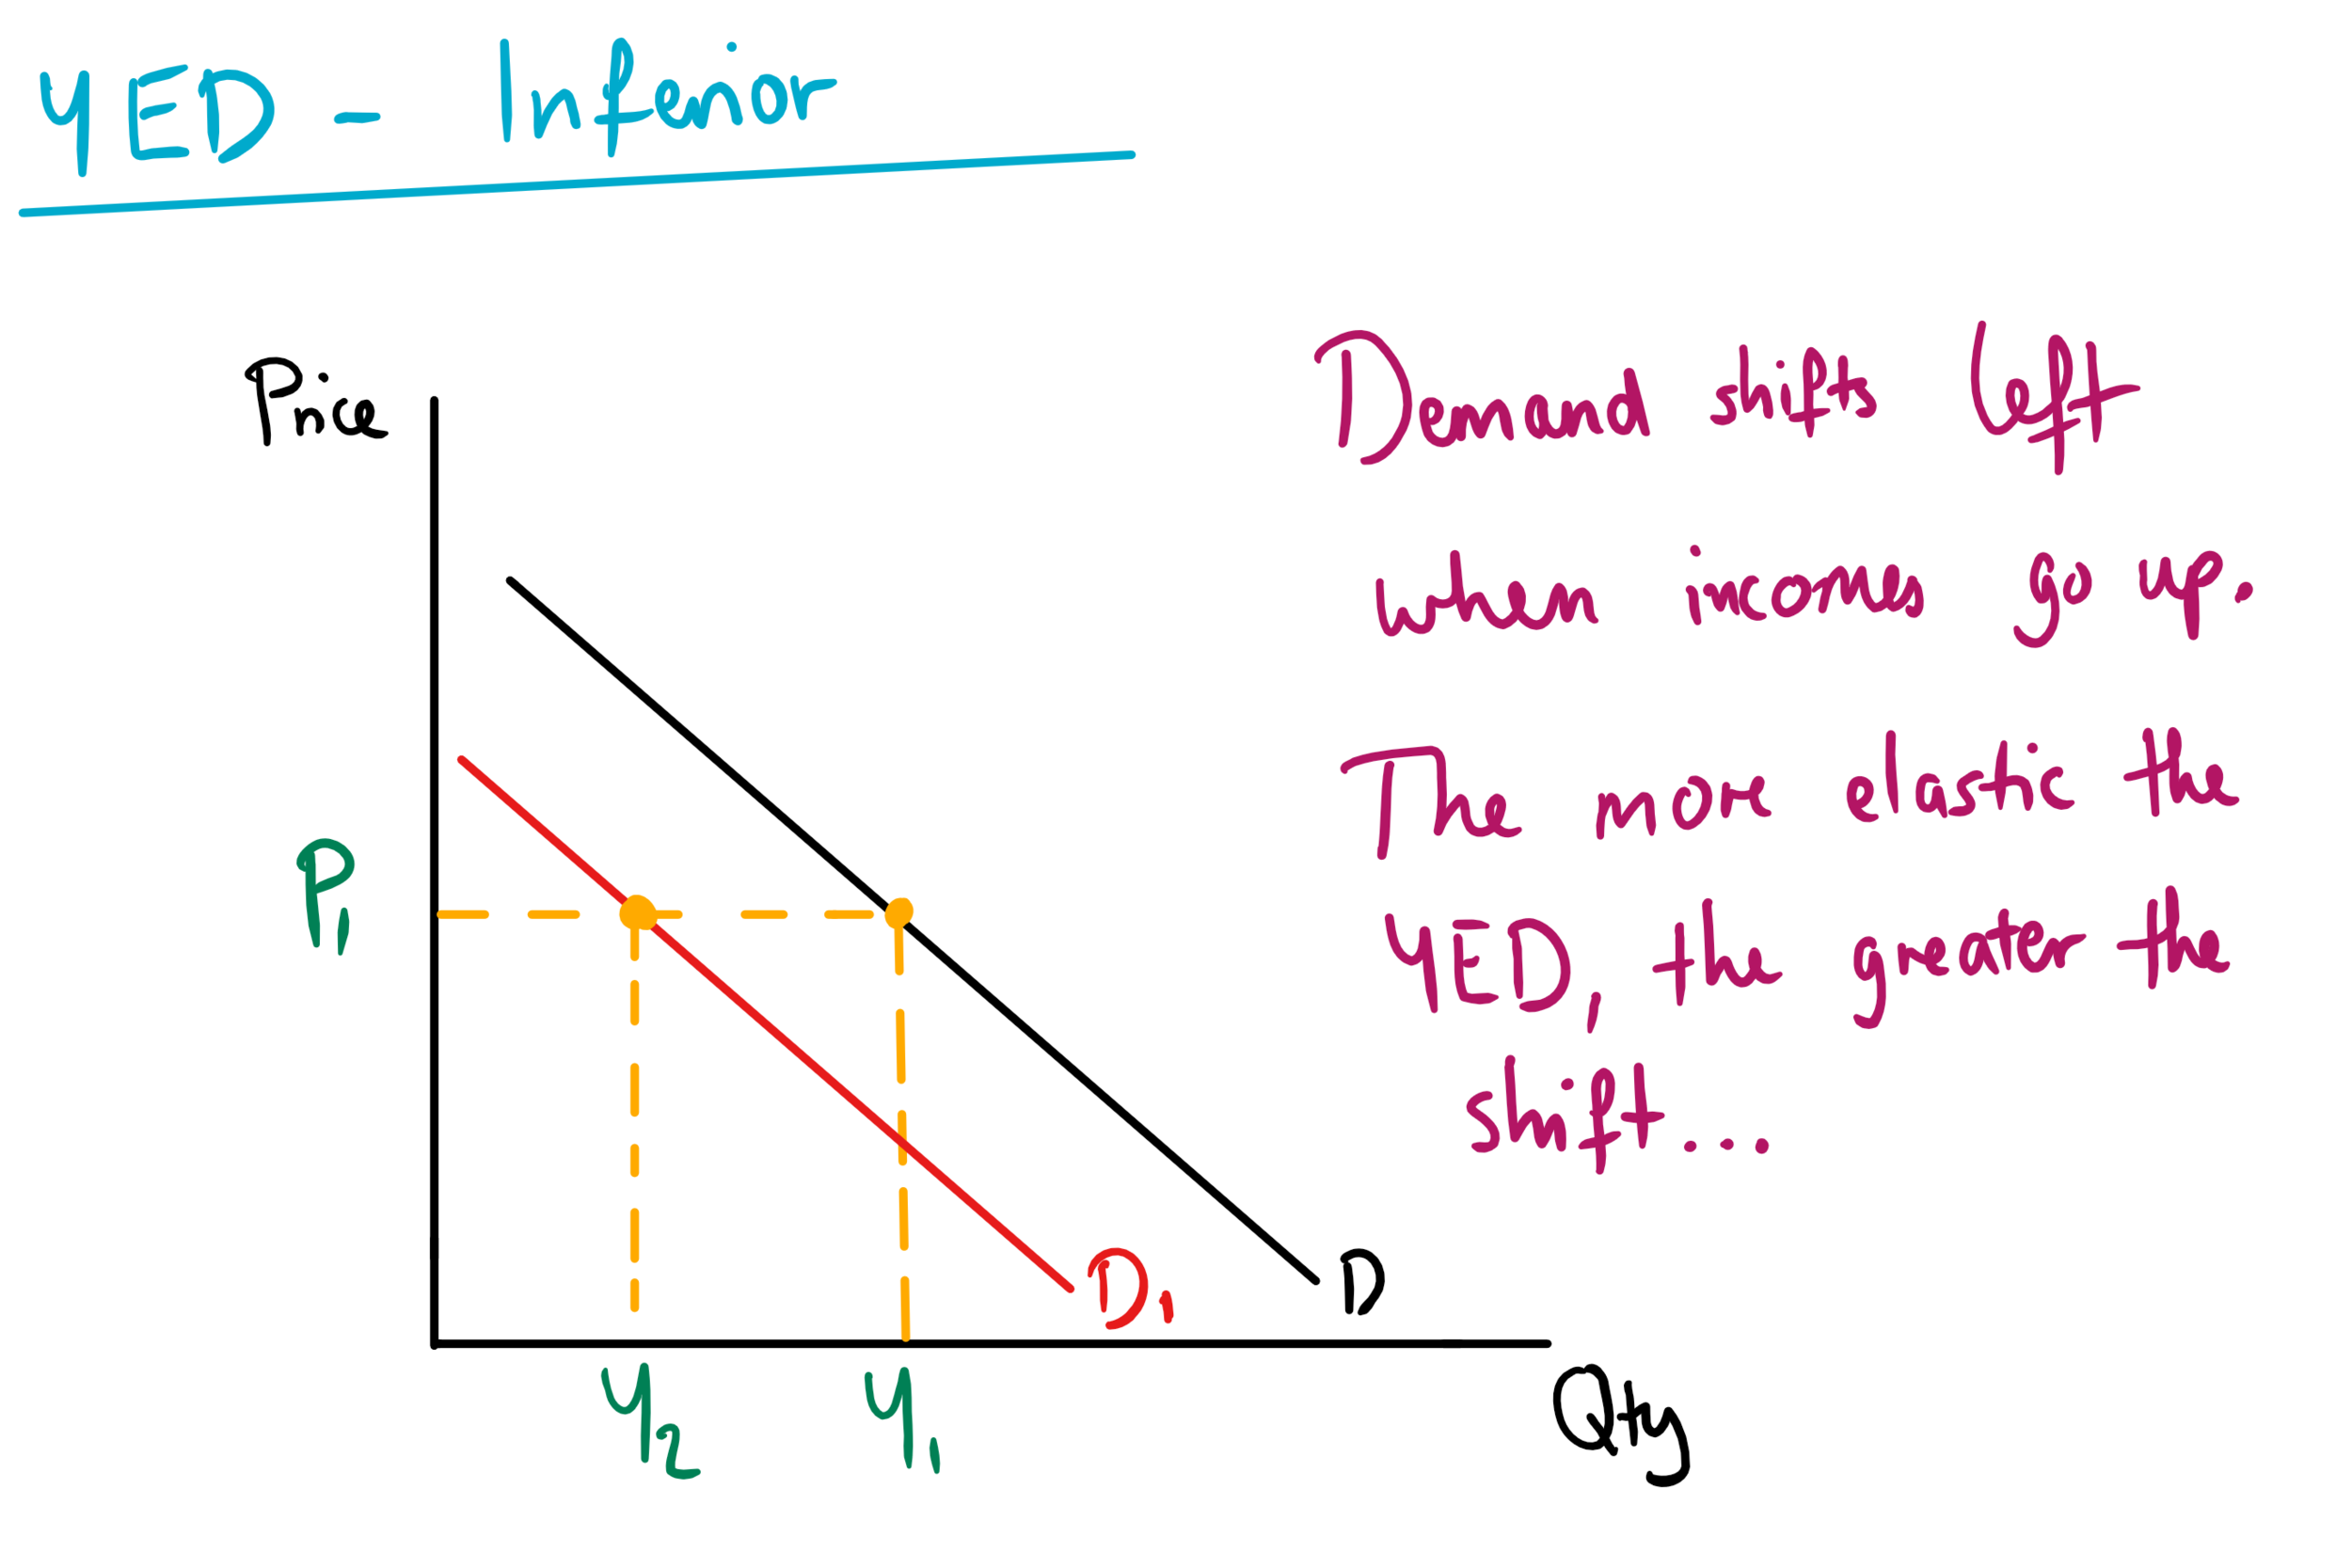 YED - Inferior
Price
Demand shifts left
when incomes go up.
The more elastic the
YED, the greater the
shift...
P1
D1
D
Y2
Y1
Qty